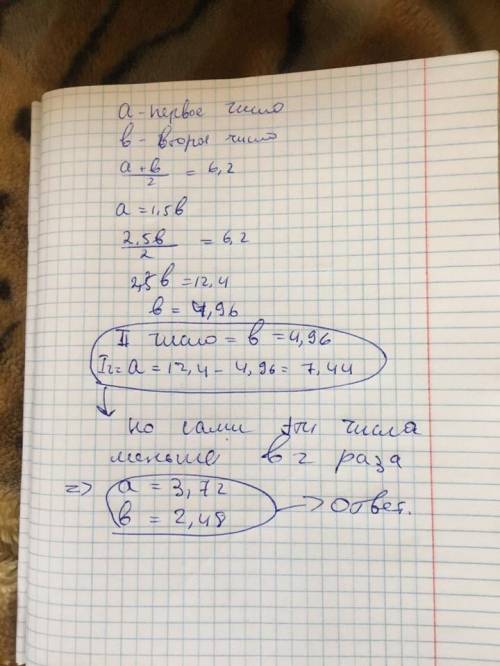 а - первое число
в - второе число
а + в / 2 = 6,2
а = 1,5в
2,5в / 2 = 6,2
2,5в = 12,4
в = 4,96
II число = в = 4,96
I = а = 12,4 - 4,96 = 7,44
но сами эти числа
меньше в 2 раза
=> а = 3,72
в = 2,48 -> Ответ.